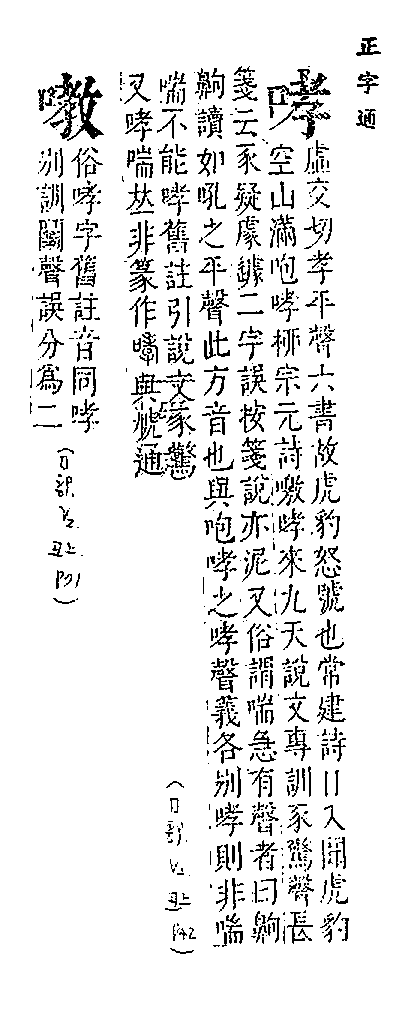 正字通
哮 虛交切孝平聲六書故虎豹怒號也常建詩日入聞虎豹
空山滿咆哮柳宗元詩噭哮來九天說文專訓豕驚聲長
箋云豕疑虖鏬二字誤按箋說亦泥又俗謂喘急有聲者曰齁
齁讀如吼之平聲此方音也與咆哮之哮聲義各別哮則非喘
喘不能哮舊註引說文豕驚
又哮喘𠀤非篆作嘷與虓通
(口部 丑上 142)
嘋 俗哮字舊註音同哮
別訓闞聲誤分為二
(口部 丑上 131)